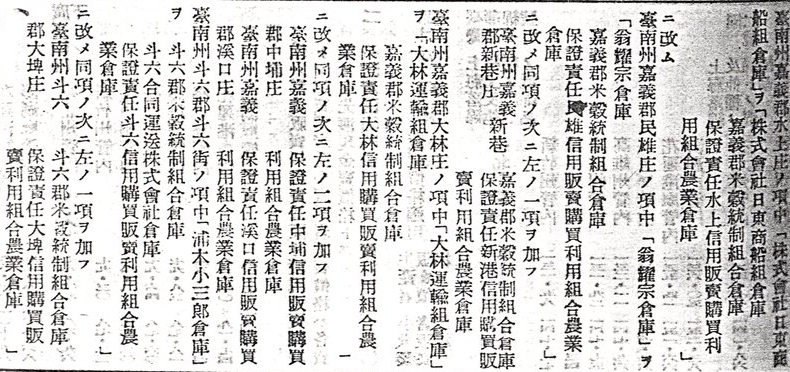 臺南州嘉義郡水上庄ノ項中「株式會社日東商
船組倉庫」ヲ「株式會社日東商船組倉庫
嘉義郡米穀統制組合倉庫
保證責任水上信用販賣購買利
用組合農業倉庫」
ニ改ム
臺南州嘉義郡民雄庄ノ項中「翁鐘宗倉庫」ヲ
「翁鐘宗倉庫
嘉義郡米穀統制組合倉庫
保證責任民雄信用販賣購買利用組合農業
倉庫」
ニ改メ同項ノ次ニ左ノ一項ヲ加フ
「臺南州嘉義 嘉義郡米穀統制組合倉庫
郡新巷庄 新巷 保證責任新港信用購買販
賣利用組合農業倉庫」
臺南州嘉義郡大林庄ノ項中「大林運輸組倉庫」
ヲ「大林運輸組倉庫
嘉義郡米穀統制組合倉庫
保證責任大林信用購買販賣利用組合農
業倉庫」
ニ改メ同項ノ次ニ左ノ二項ヲ加フ
「臺南州嘉義 保證責任中埔信用販賣購買
郡中埔庄 利用組合農業倉庫
臺南州嘉義 保證責任溪口信用販賣購買
郡溪口庄 利用組合農業倉庫」
臺南州斗六郡斗六街ノ項中「浦木小三郎倉庫」
ヲ「斗六郡米穀統制組合倉庫
斗六合同運送株式會社倉庫
保證責任斗六信用購買販賣利用組合農
業倉庫」
ニ改メ同項ノ次ニ左ノ一項ヲ加フ
「臺南州斗六 斗六郡米穀統制組合倉庫
郡大埤庄 保證責任大埤信用購買販
賣利用組合農業倉庫」